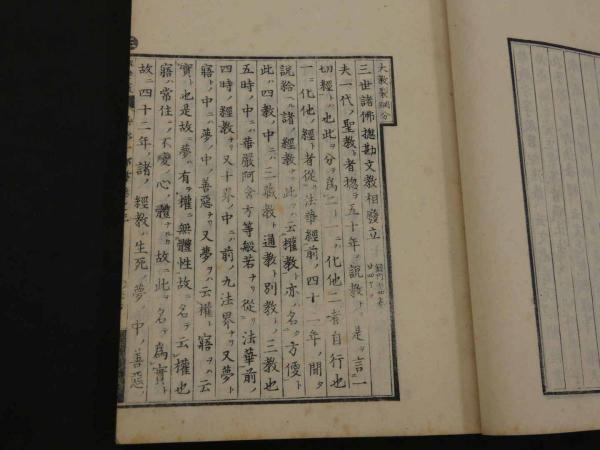 三世諸佛揔勘文教相發立
夫一代ノ聖教ト者揔ヲ五十年ノ說教ト是ヲ言一
切經ト也此ヲ分為二ト一ニハ化他二ニ者自行也
一ニ化他ノ經ト者從リ法華經前ノ四十二年ノ開タ
說給ヘル諸ノ經教ナリ此ヲハ云權教ト亦名ク方便ト
此ハ四教ノ中ニハ三藏教ト通教ト別教トノ三教也
五時ノ中ニハ華嚴阿含方等般若ナリ從リ法華前ノ
四時ノ經教ナリ又十界ノ中ニハ前ノ九法界ナリ又夢ト
寤トノ中ニハ夢ノ中ノ善惡ナリ又夢ヲハ云權ト寤ヲハ云
實ト也是故ニ夢ハ有テ權ニ無體性故ニ名テ云權也
寤ハ常住ニシテ不變ノ心體ナルカ故ニ此ヲ名テ為實ト
故ニ四十二年ノ諸ノ經教ハ生死ノ夢ノ中ノ善惡ノ